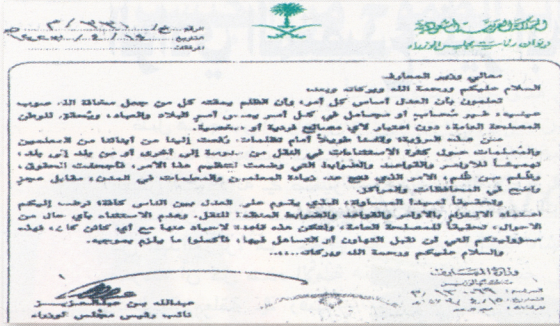 المملكة العربية السعودية
ديوان رئاسة مجلس الوزراء
الرقم
التاريخ
المرفقات
معالي وزير المعارف
السلام عليكم ورحمة الله وبركاته وبعد،
تعلمون بأن العدل أساس كل أمر، وأن الظلم يمقته كل من جعل مخافة الله صوب
عينيه، غير محاب أو مجامل في كل أمر يمس أمر البلاد والعباد، ويحقق للوطن
المصلحة العامة، دون اعتبار لأي مصالح فردية أو شخصية.
من هذه الرؤية، وقفنا طويلاً أمام تظلمات، رفعت إلينا من أبنائنا من المعلمين
والمعلمات، حول كثرة الاستثناءات في النقل من مدرسة إلى أخرى أو من بلد إلى بلد،
للأوامر والقواعد والضوابط التي وضعت لتنظيم هذا الأمر، الحقوق،
وظلم من ظلم، الأمر الذي نتج عنه زيادة المعلمين والمعلمات في المدن، مقابل عجز
واضح في المحافظات والمراكز.
وتحقيقاً لمبدأ المساواة، الذي يقوم على العدل بين الناس كافة، نرغب إليكم
اعتماد الالتزام بالأوامر والقواعد والضوابط المنظمة للنقل، وعدم الاستثناء بأي حال من
الأحوال، تحقيقاً للمصلحة العامة، ولتكن هذه قاعدة لا حياد عنها مع أي كائن كان، فهذه
مسؤوليتكم التي لن نقبل التهاون أو التساهل فيها، فأكملوا ما يلزم بموجبه.
والسلام عليكم ورحمة الله وبركاته،،،،،
عبدالله بن عبدالعزيز
نائب رئيس مجلس الوزراء
وزارة المعارف